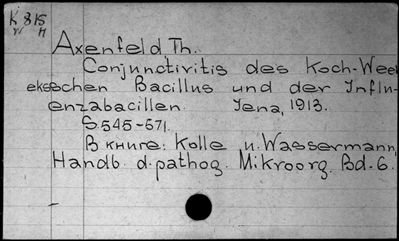 К 815
W H
Axenfeld Th.
Conjunctivitis des Koch-Week
eksschen Bacillus und der Influ-
enzabacillen. Jena, 1913.
S. 545-671.
В книге: Kolle u. Wassermann,
Handb. d. pathog. Mikroorg. Bd. 6.